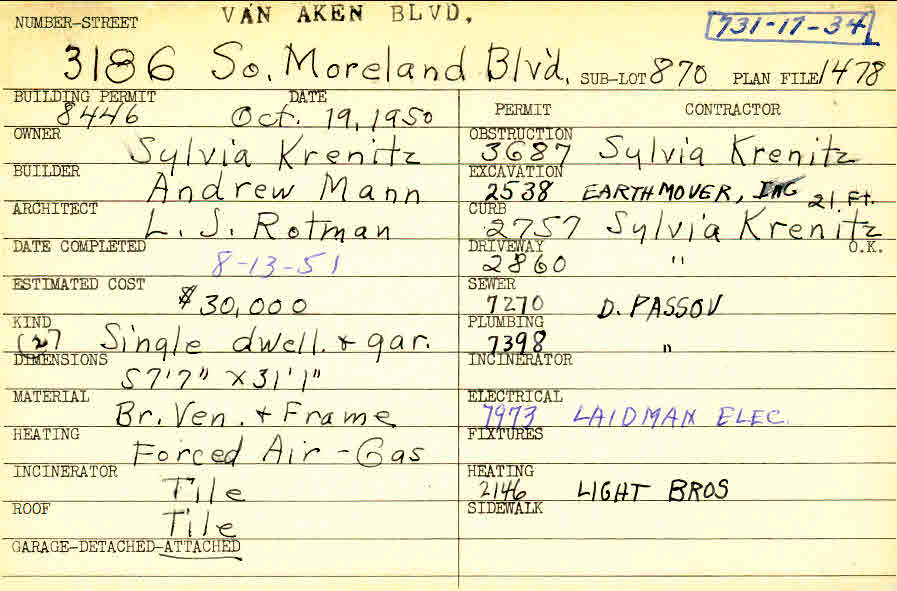 VAN AKEN BLVD.
NUMBER-STREET 731-17-34
3186 So. Moreland Blv'd. SUB-LOT 870 PLAN FILE 1478
BUILDING PERMIT DATE PERMIT CONTRACTOR
8446 Oct. 19, 1950
OWNER Sylvia Krenitz
OBSTRUCTION 3687 Sylvia Krenitz
BUILDER Andrew Mann
EXCAVATION 2538 EARTHMOVER, INC 21 Ft.
ARCHITECT L. J. Rotman
CURB 2757 Sylvia Krenitz
DATE COMPLETED 8-13-51
DRIVEWAY 2860 " O.K.
ESTIMATED COST $30,000
SEWER 7270 D. PASSOV
KIND Single dwell. + gar.
PLUMBING 7398 "
DIMENSIONS 57'7" X 31'1"
INCINERATOR
MATERIAL Br. Ven. + Frame
ELECTRICAL 7973 LAIDMAN ELEC.
HEATING Forced Air - Gas
FIXTURES
INCINERATOR Tile
HEATING 2146 LIGHT BROS
ROOF Tile
SIDEWALK
GARAGE-DETACHED-ATTACHED